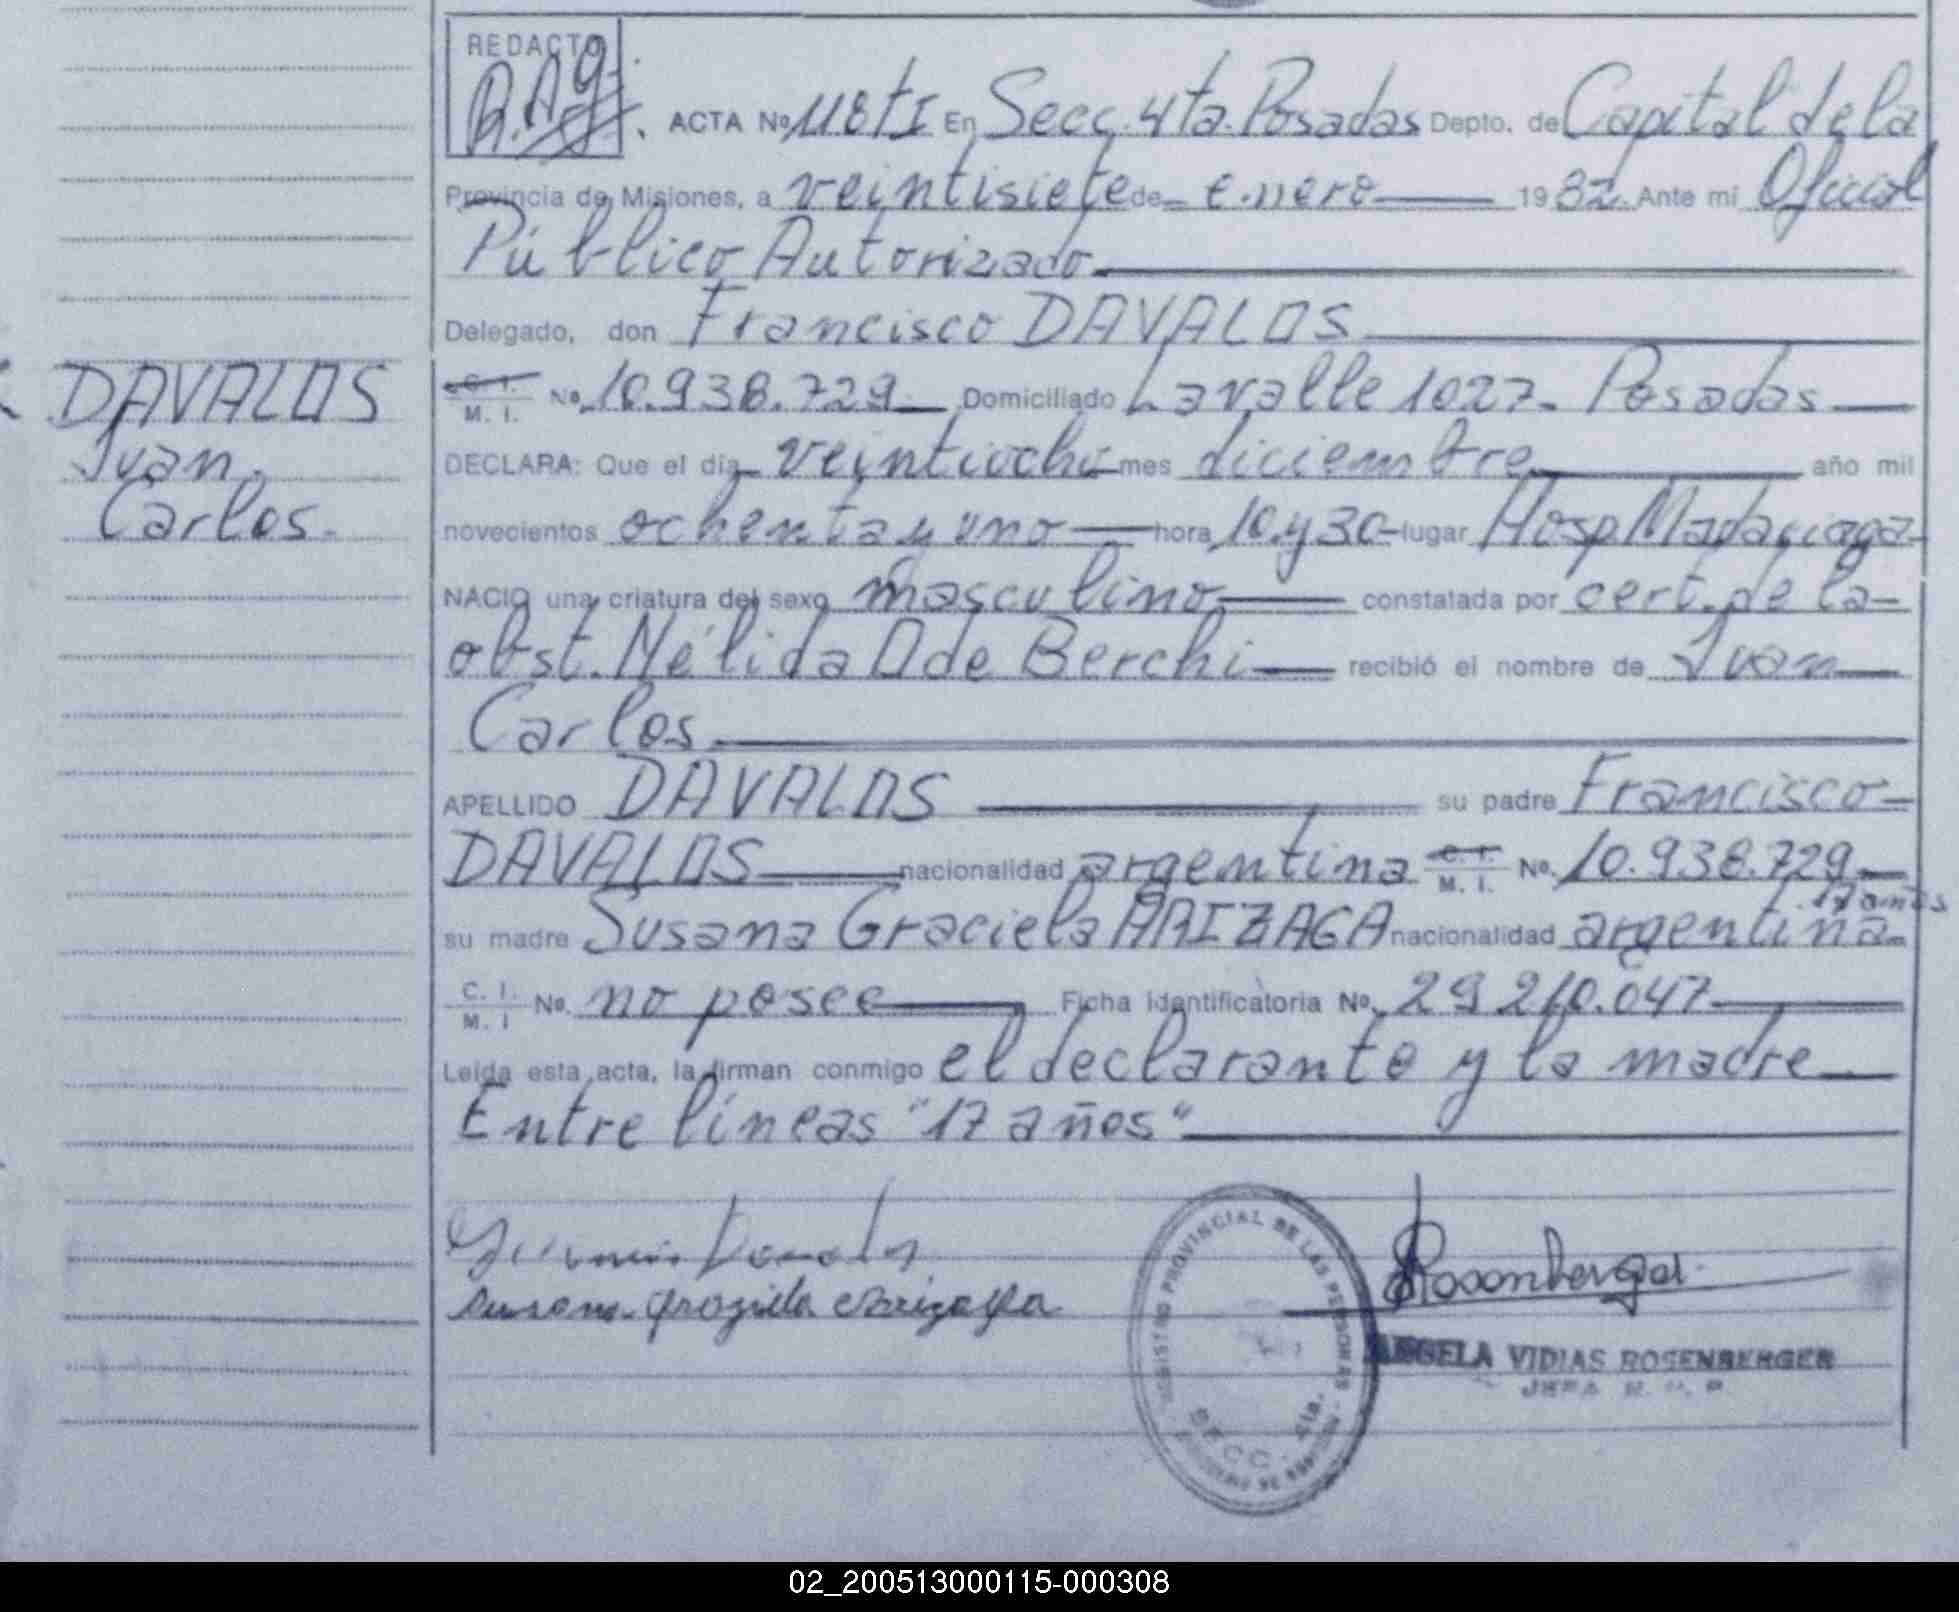 REDACTO
R.A.G.
ACTA Nº 118 tI En Secc. 4ta. Posadas Depto. de Capital de la
Provincia de Misiones, a veintisiete de enero 1982. Ante mí Oficial
Público Autorizado
Delegado, don Francisco DAVALOS
DAVALOS
Ivan
Carlos.
C. I.
M. I. Nº 10.938.729 Domiciliado Lavalle 1027. Posadas
DECLARA: Que el día veintiocho mes diciembre año mil
novecientos ochenta y uno hora 10 y 30 lugar Hosp. Madariaga
NACIO una criatura del sexo masculino constatada por cert. de la
obst. Nélida O de Berchi recibió el nombre de Ivan
Carlos
APELLIDO DAVALOS su padre Francisco
DAVALOS nacionalidad argentina C. I. M. I. Nº 10.938.729
17 años
su madre Susana Graciela ARIZAGA nacionalidad argentina
C. I.
M. I Nº no posee Ficha identificatoria Nº 29 210.047
Leída esta acta, la firman conmigo el declarante y la madre
Entre líneas "17 años"
susana graziela arizaga
Rosenberger
REGISTRO PROVINCIAL DE LAS PERSONAS
SECC. 4ta.
ANGELA VIDIAS ROSENBERGER
JEFA R. P.
02_200513000115-000308